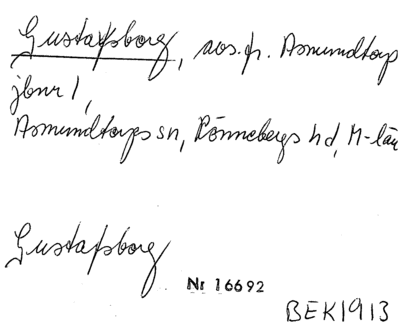 Gustafsborg, avs.fr. Asmundtorp
jbnr 1,
Asmundtorps sn, Rönnebergs hd, M-län
Gustafsborg
Nr 16692
BEK1913